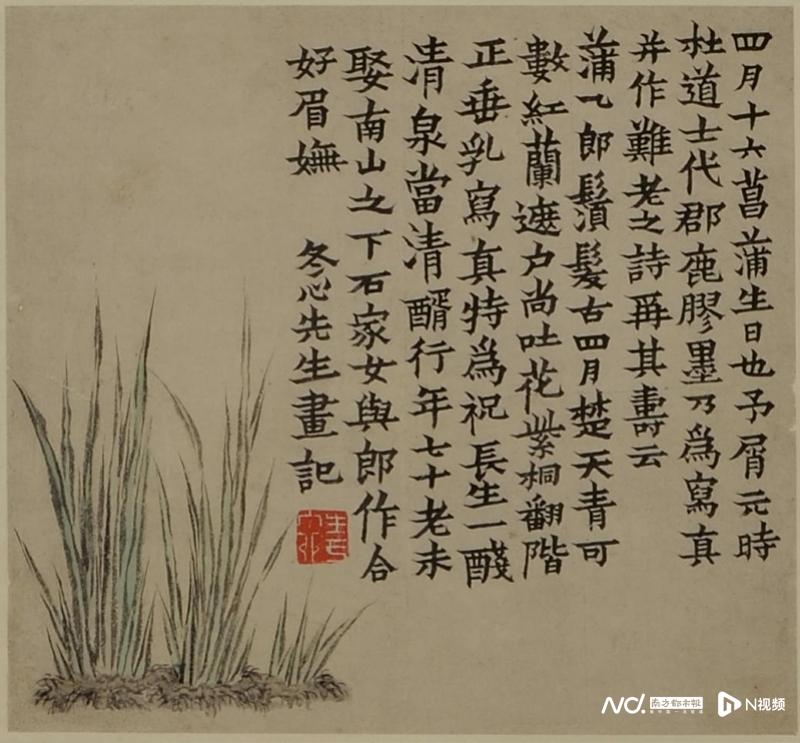 四月十六菖蒲生日也予屑元時
杜道士代郡鹿膠墨乃為寫真
并作難老之詩再其壽云
蒲乀郎鬚髮古四月楚天青可
數紅蘭遮户尚吐花紫桐翻階
正垂乳寫真特為祝長生一醆
清泉當清醑行年七十老未
娶南山之下石家女與郎作合
好眉嫵
冬心先生畫記
南方都市报
N视频